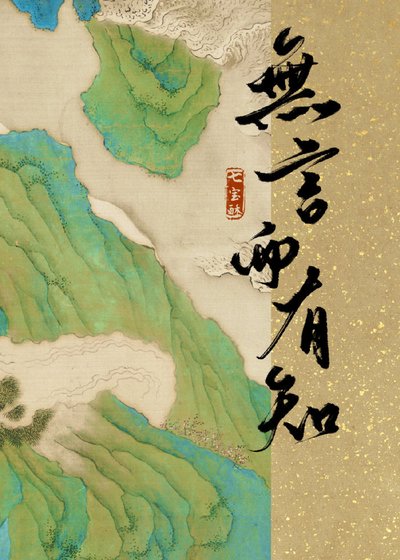 無言而有知
七宝酥